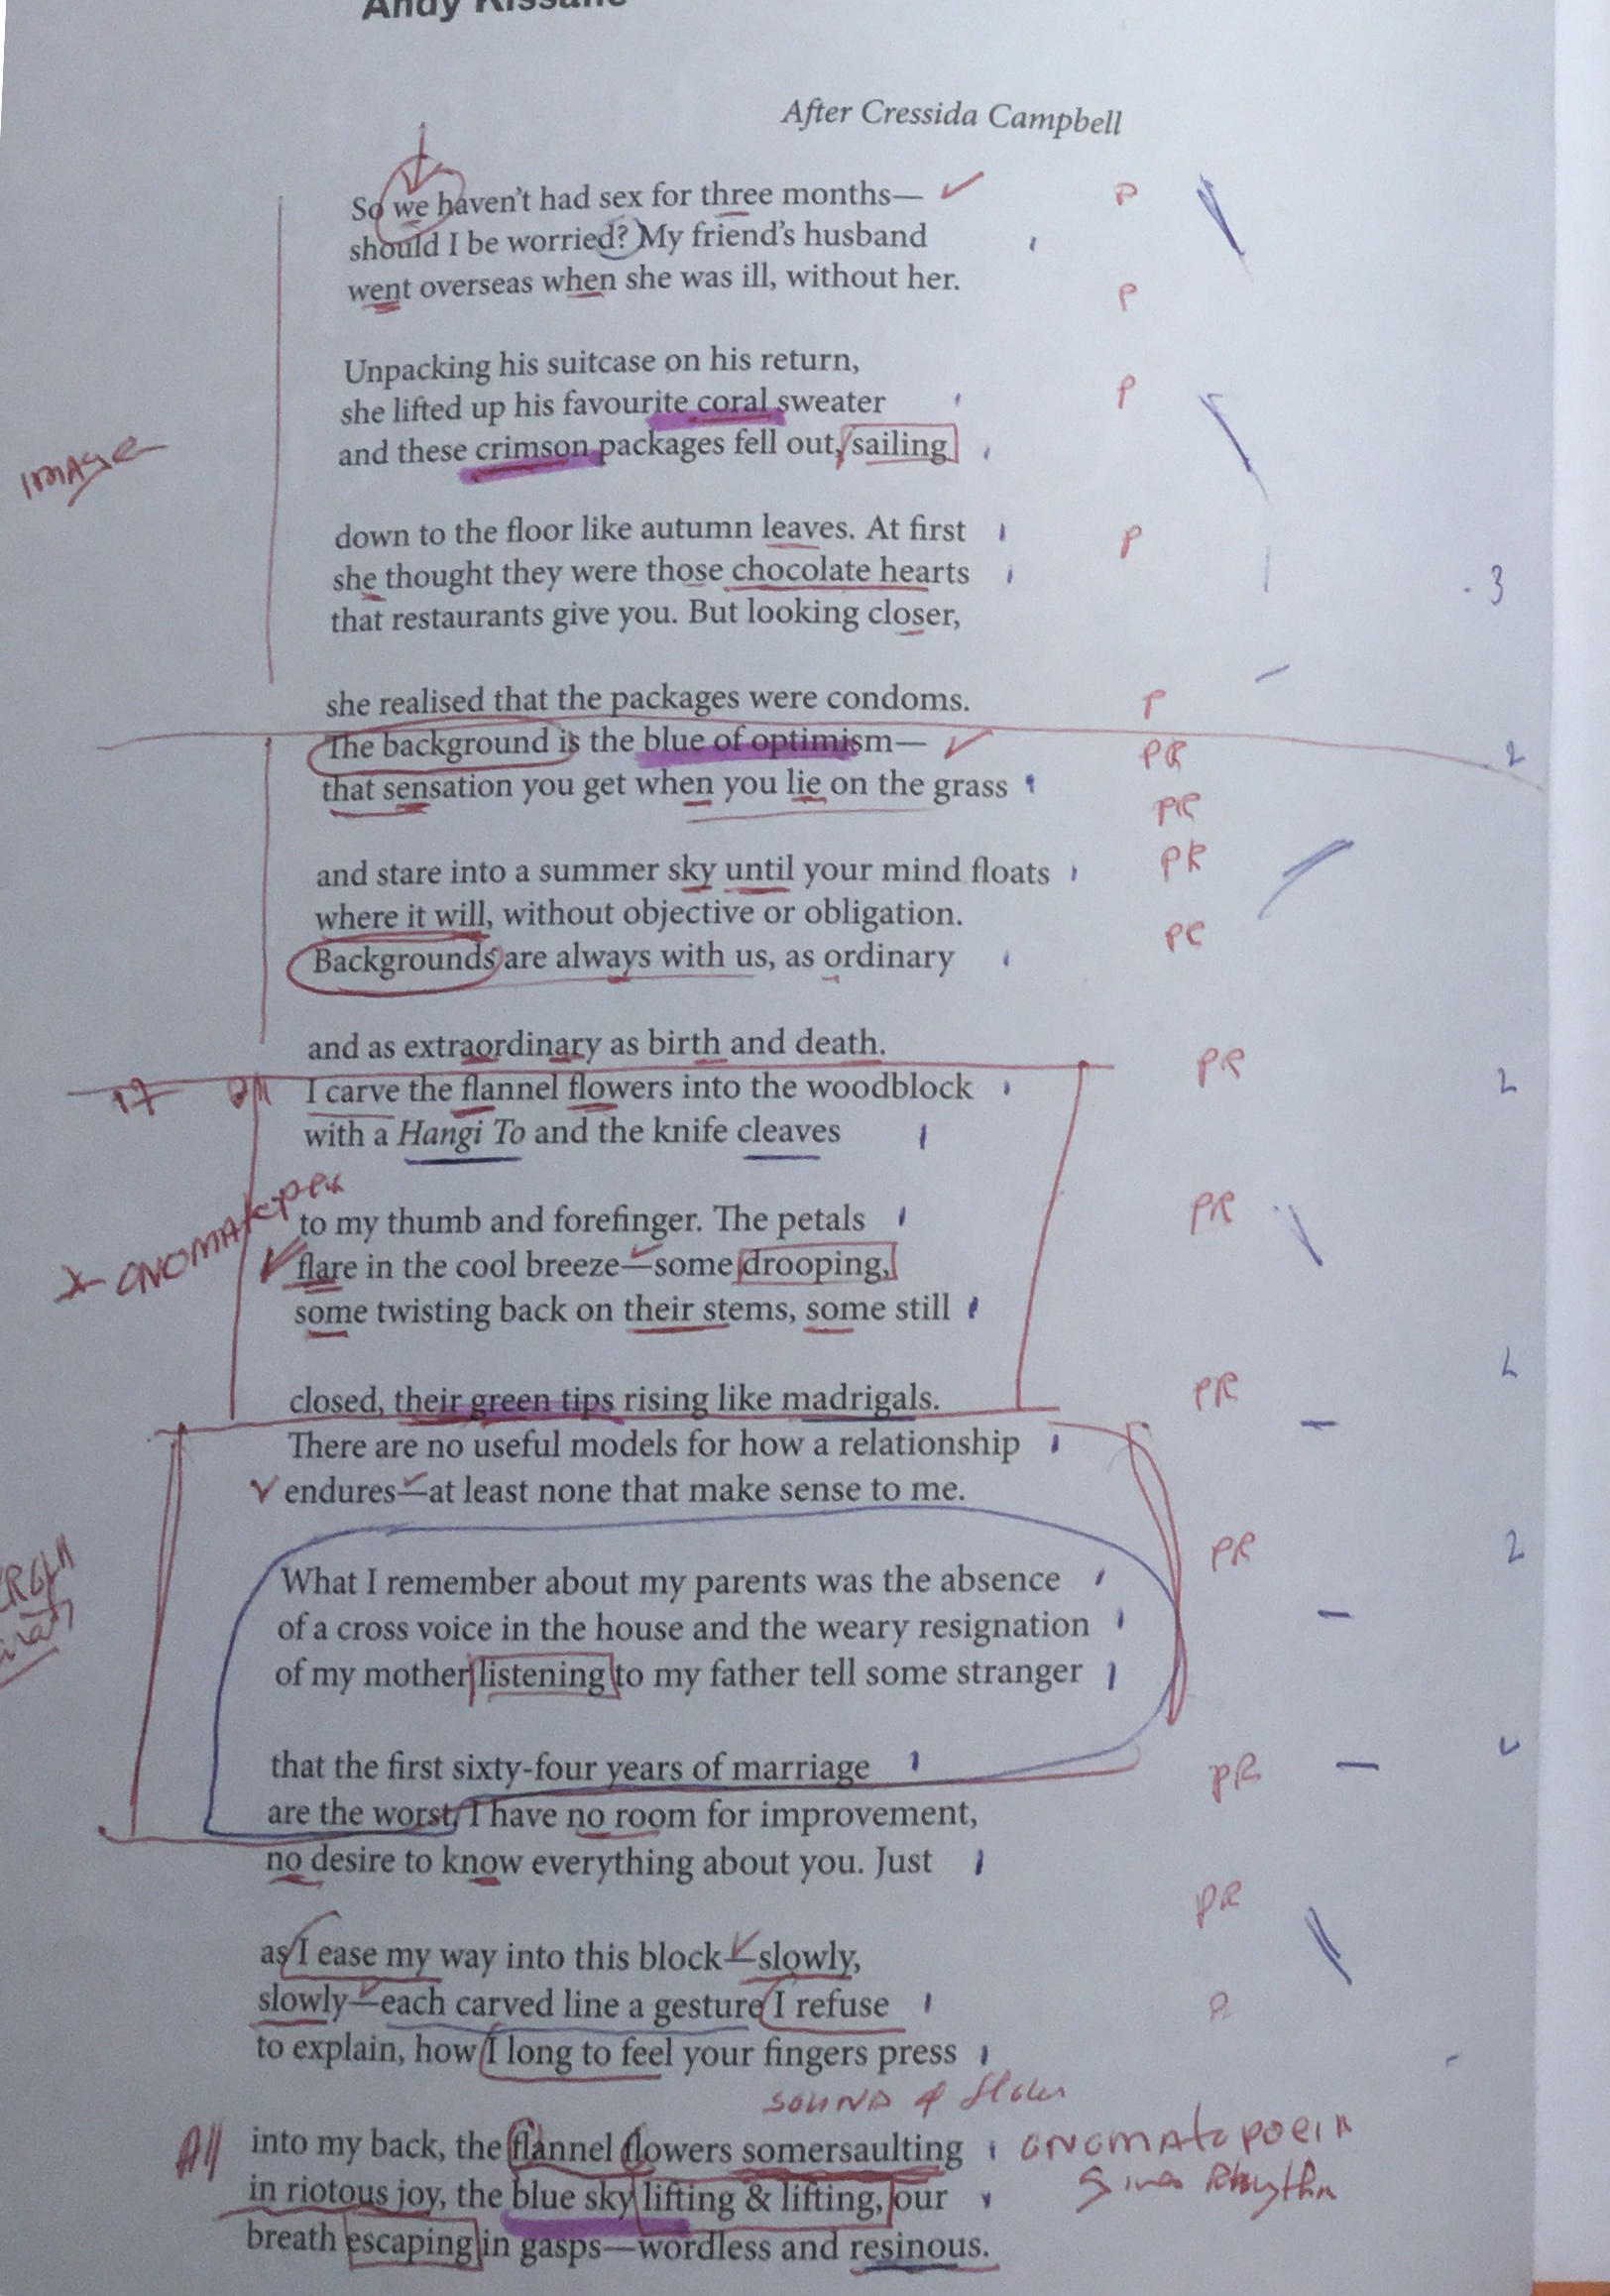 Andy Kissane
After Cressida Campbell
So we haven't had sex for three months— P
should I be worried? My friend's husband
went overseas when she was ill, without her. P
Unpacking his suitcase on his return,
she lifted up his favourite coral sweater P
and these crimson packages fell out, sailing
IMAGE
down to the floor like autumn leaves. At first P
she thought they were those chocolate hearts 3
that restaurants give you. But looking closer,
she realised that the packages were condoms. P
The background is the blue of optimism— PR 2
that sensation you get when you lie on the grass PR
and stare into a summer sky until your mind floats PR
where it will, without objective or obligation.
Backgrounds are always with us, as ordinary
and as extraordinary as birth and death. PR
I carve the flannel flowers into the woodblock 2
with a Hangi To and the knife cleaves
to my thumb and forefinger. The petals PR
flare in the cool breeze—some drooping,
some twisting back on their stems, some still
closed, their green tips rising like madrigals. PR
There are no useful models for how a relationship
endures—at least none that make sense to me.
What I remember about my parents was the absence PR 2
of a cross voice in the house and the weary resignation
of my mother listening to my father tell some stranger
that the first sixty-four years of marriage PR
are the worst. I have no room for improvement,
no desire to know everything about you. Just
PR
as I ease my way into this block—slowly,
slowly—each carved line a gesture I refuse
to explain, how I long to feel your fingers press
SOUND of
All into my back, the flannel flowers somersaulting ONOMATOPOEIA
in riotous joy, the blue sky lifting & lifting, our Gives Rhythm
breath escaping in gasps—wordless and resinous.